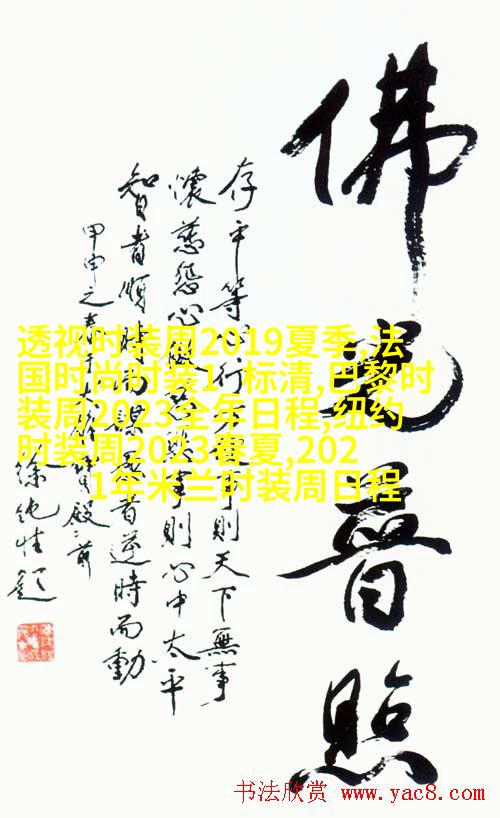 佛光普照
存平等心行方便事則天下無事
懷慈悲心做慈悲事則心中太平
智者順時而謀愚者逆時而動
甲申之春于大雄寶殿之前
徐純性題
透视时装周2019夏季,法
国时尚时装1 标清,巴黎时
装周2023全年日程,纽约
时装周2023春夏,202
1年米兰时装周日程
书法欣赏 www.yac8.com